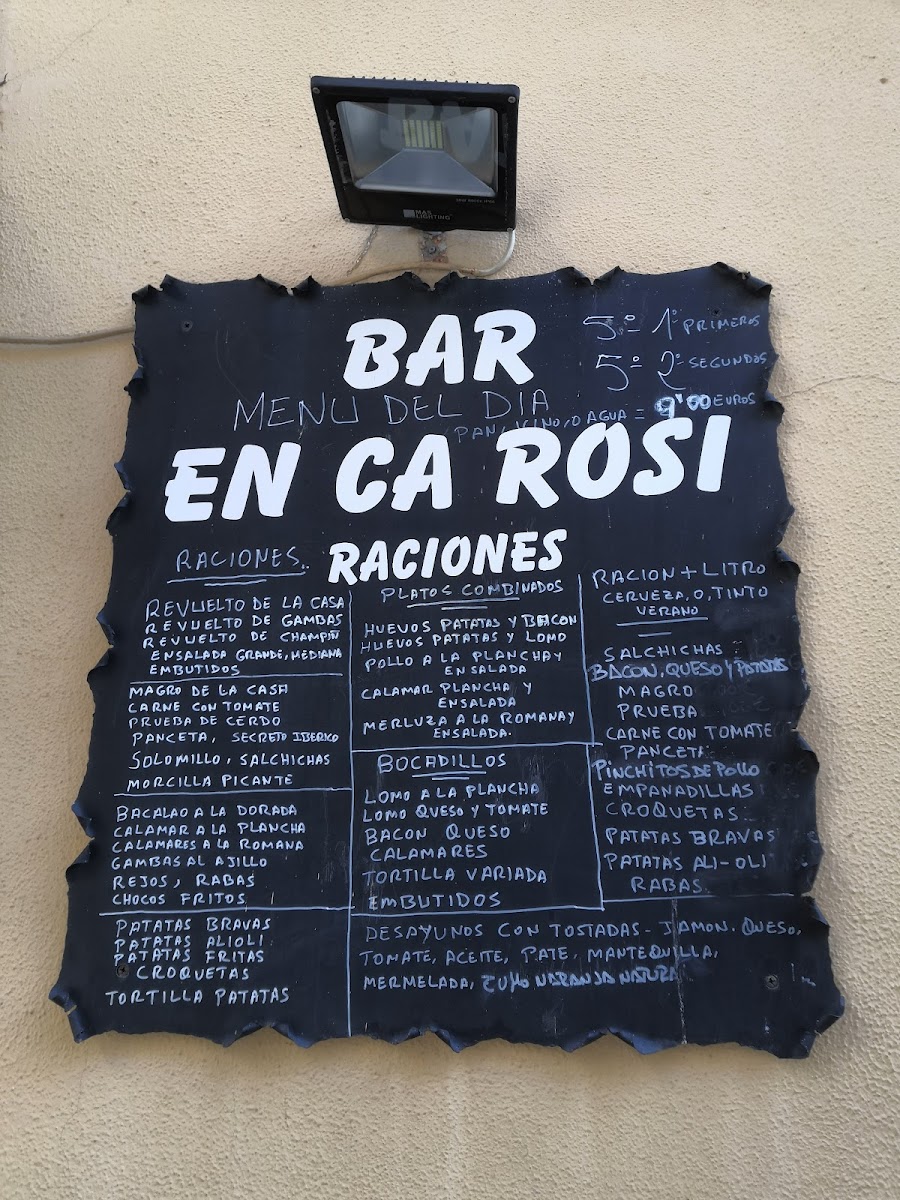 MAS
LIGHTING
BAR
5º 1º PRIMEROS
5º 2º SEGUNDOS
MENU DEL DIA
PAN, VINO, O AGUA = 9'00 EUROS
EN CA ROSI
RACIONES
RACIONES..
REVUELTO DE LA CASA
REVUELTO DE GAMBAS
REVUELTO DE CHAMPIÑ
ENSALADA GRANDE, MEDIANA
EMBUTIDOS
MAGRO DE LA CASA
CARNE CON TOMATE
PRUEBA DE CERDO
PANCETA, SECRETO IBERICO
SOLOMILLO, SALCHICHAS
MORCILLA PICANTE
BACALAO A LA DORADA
CALAMAR A LA PLANCHA
CALAMARES A LA ROMANA
GAMBAS AL AJILLO
REJOS, RABAS
CHOCOS FRITOS
PATATAS BRAVAS
PATATAS ALIOLI
PATATAS FRITAS
CROQUETAS
TORTILLA PATATAS
PLATOS COMBINADOS
HUEVOS PATATAS Y BACON
HUEVOS PATATAS Y LOMO
POLLO A LA PLANCHA Y
ENSALADA
CALAMAR PLANCHA Y
ENSALADA
MERLUZA A LA ROMANA Y
ENSALADA.
BOCADILLOS
LOMO A LA PLANCHA
LOMO QUESO Y TOMATE
BACON QUESO
CALAMARES
TORTILLA VARIADA
EMBUTIDOS
RACION + LITRO
CERVEZA, O, TINTO
VERANO
SALCHICHAS
BACON, QUESO Y PATATAS
MAGRO
PRUEBA
CARNE CON TOMATE
PANCETA
PINCHITOS DE POLLO
EMPANADILLAS
CROQUETAS
PATATAS BRAVAS
PATATAS ALI-OLI
RABAS
DESAYUNOS CON TOSTADAS - JAMON. QUESO,
TOMATE, ACEITE, PATE, MANTEQUILLA,
MERMELADA, ZUMO NARANJA NATURAL